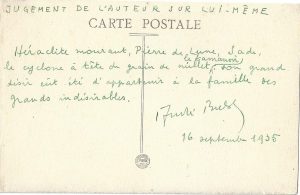 JUGEMENT DE L'AUTEUR SUR LUI-MÊME
CARTE POSTALE
Héraclite mourant, Pierre de Lune, Sade,
le tamanoir
le cyclone à tête de grain de millet, son grand
désir eût été d'appartenir à la famille des
grands indésirables.
André Breton
16 septembre 1935